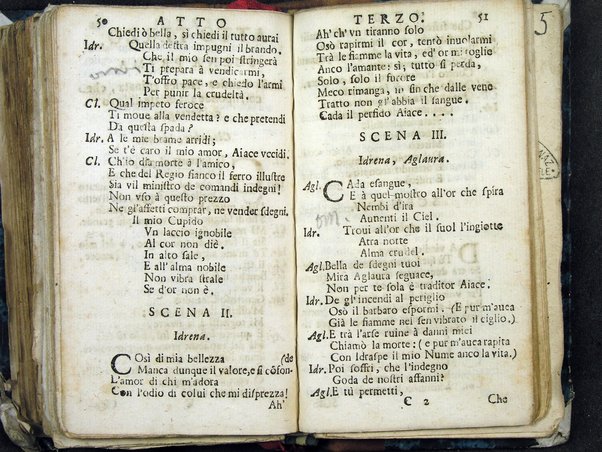 50 ATTO
Chiedi ò bella, sì chiedi il tutto aurai
Idr. Quella destra impugni il brando.
Che, il mio sen poi stringerà
Ti prepara à vendicarmi,
T'offro pace, e chiedo l'armi
Per punir la crudeltà.
Cl. Qual impeto feroce
Ti moue alla vendetta? e che pretendi
Da questa spada?
Idr. A le mie brame arridi;
Se t'è caro il mio amor, Aiace vccidi.
Cl. Ch'io dia morte à l'amico,
E che del Regio fianco il ferro illustre
Sia vil ministro de comandi indegni!
Non vsò à questo prezzo
Ne gl'affetti comprar, ne vender sdegni.
Il mio Cupido
Vn laccio ignobile
Al cor non diè.
In alto sale,
E all'alma nobile
Non vibra strale
Se d'or non è.
SCENA II.
Idrena.
Così di mia bellezza (de
Manca dunque il valore, e si cõfon-
L'amor di chi m'adora
Con l'odio di colui che mi disprezza!
Ah'
TERZO. 51
Ah' ch'vn tiranno solo
Osò rapirmi il cor, tentò inuolarmi
Trà le fiamme la vita, ed'or mi toglie
Anco l'amante: sì, tutto si perda,
Solo, solo il furore
Meco rimanga, in sin che dalle vene
Tratto non gl'abbia il sangue.
Cada il perfido Aiace . . . .
SCENA III.
Idrena, Aglaura.
Agl. Cada esangue,
E à quel mostro all'or che spira
Nembi d'ira
Auuenti il Ciel.
Idr. Troui all'or che il suol l'ingiotte
Atra notte
Alma crudel.
Agl. Bella de sdegni tuoi
Mira Aglaura seguace,
Non per te sola è traditor Aiace.
Idr. De gl'incendi al periglio
Osò il barbaro espormi. (E pur m'auea
Già le fiamme nel sen vibrato il ciglio.)
Agl. E trà l'arse ruine à danni miei
Chiamò la morte: (e pur m'auea rapita
Con Idraspe il mio Nume anco la vita.)
Idr. Poi soffri, che l'indegno
Goda de nostri affanni?
Agl. E tù permetti,
C 2 Che
5